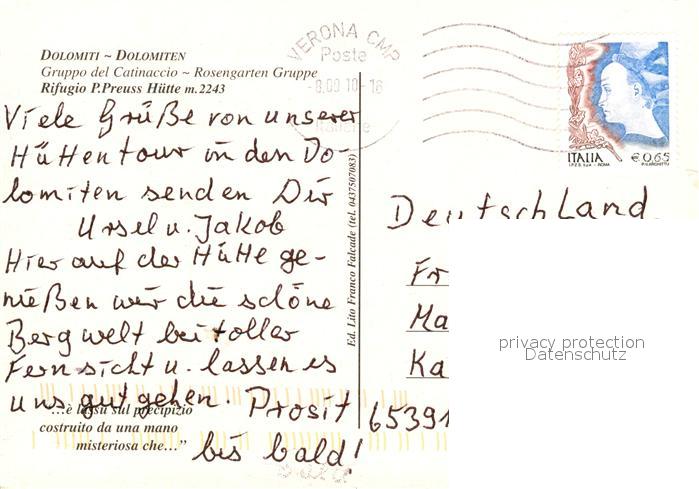 DOLOMITI ~ DOLOMITEN
Gruppo del Catinaccio ~ Rosengarten Gruppe
Rifugio P.Preuss Hütte m.2243
VERONA CMP
Poste
ITALIA
€ 0,65
Viele Grüße von unserer
Hüttentour in den Do-
lomiten senden Dir
Ursel u. Jakob
Hier auf der Hütte ge-
nießen wir die schöne
Bergwelt bei toller
Fernsicht u. lassen es
uns gut gehen. Prosit
bis bald!
"...è lassù sul precipizio
costruito da una mano
misteriosa che..."
Ed. Lito Franco Falcade (tel. 0437507083)
Deutschland
Fr
Ma
Ka
65391
privacy protection
Datenschutz